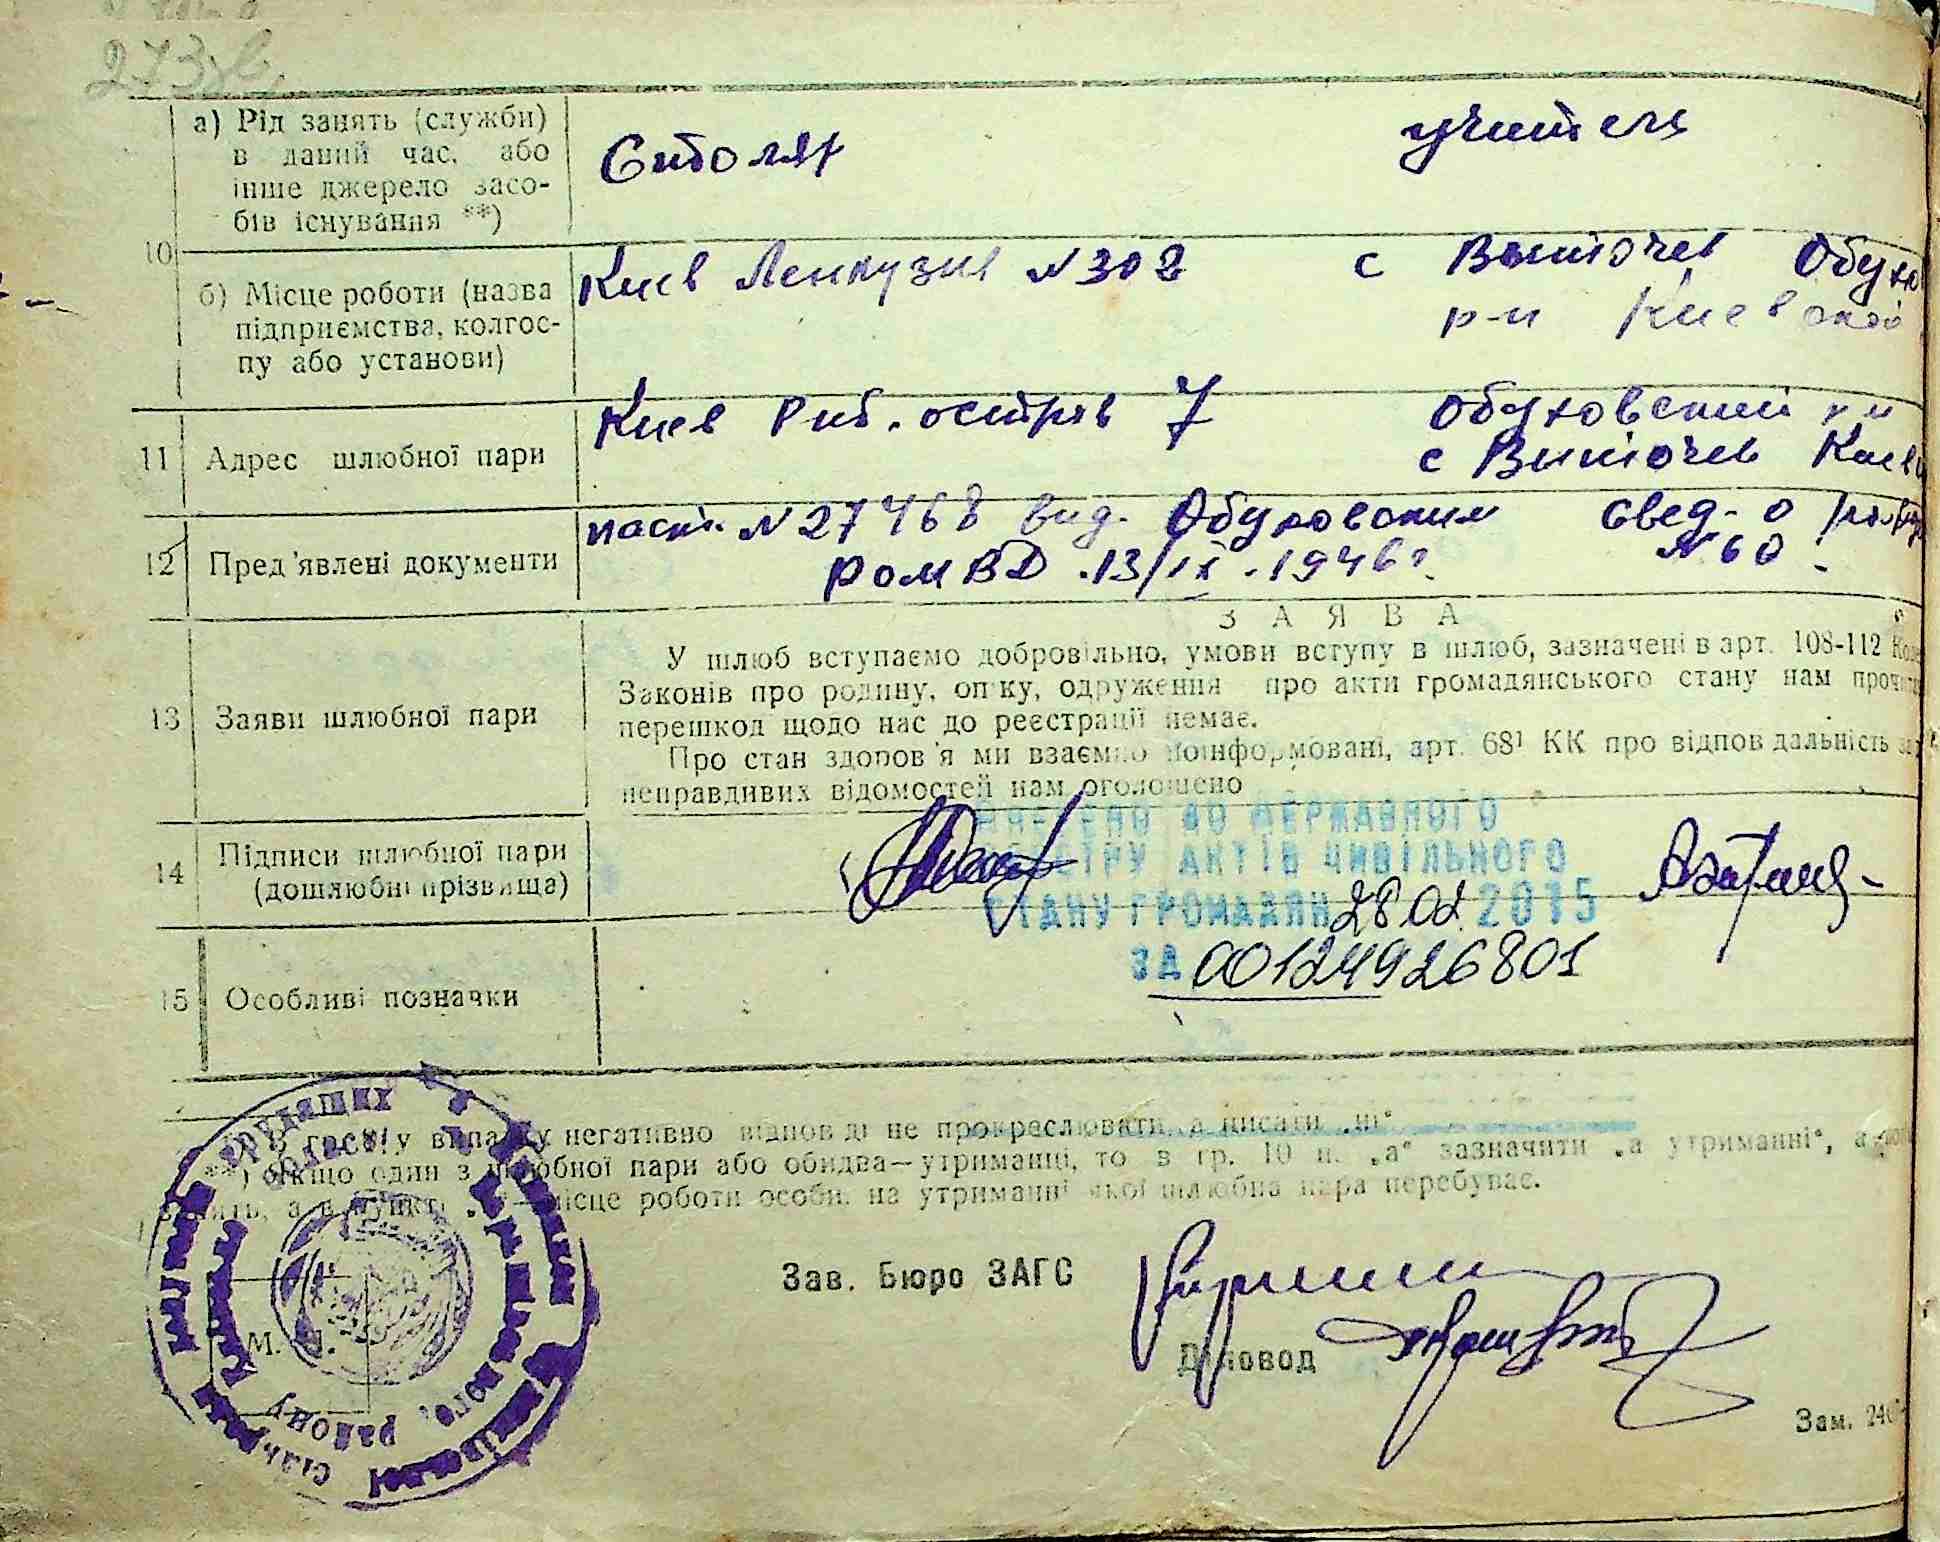 273
а) Рід занять (служби)
в даний час, або
інше джерело засо-
бів існування **)
Столяр
учитель
10
б) Місце роботи (назва
підприємства, колгос-
пу або установи)
Киев N 302
с Витачев Обухо
р-н Киевской
11 Адрес шлюбної пари
Киев Риб. острів 7
Обуховский р н
с Витачев Киев
12 Пред'явлені документи
пасп. N 27468 вид. Обуховским
РОМВД 13/IX 1946 г.
свед- о
N 60
З А Я В А
13 Заяви шлюбної пари
У шлюб вступаємо добровільно, умови вступу в шлюб, зазначені в арт. 108-112
Законів про родину, опіку, одруження про акти громадянського стану нам
перешкод щодо нас до реєстрації немає.
Про стан здоров'я ми взаємно поінформовані, арт. 68¹ КК про відповідальність за
неправдивих відомостей нам оголошено
14 Підписи шлюбної пари
(дошлюбні прізвища)
ВНЕСЕНО ДО ДЕРЖАВНОГО
РЕЄСТРУ АКТІВ ЦИВІЛЬНОГО
СТАНУ ГРОМАДЯН 28 01 2015
ЗА 00124926801
15 Особливі позначки
у випадку негативно відповіді не прокреслювати, а писати „ні“
**) Якщо один з шлюбної пари або обидва—утриманці, то в гр. 10 п. „а“ зазначити „а утриманні“, а
місце роботи особи, на утриманні якої шлюбна пара перебуває.
трудящих
району
М. П.
Зав. Бюро ЗАГС
Діловод
Зам. 240